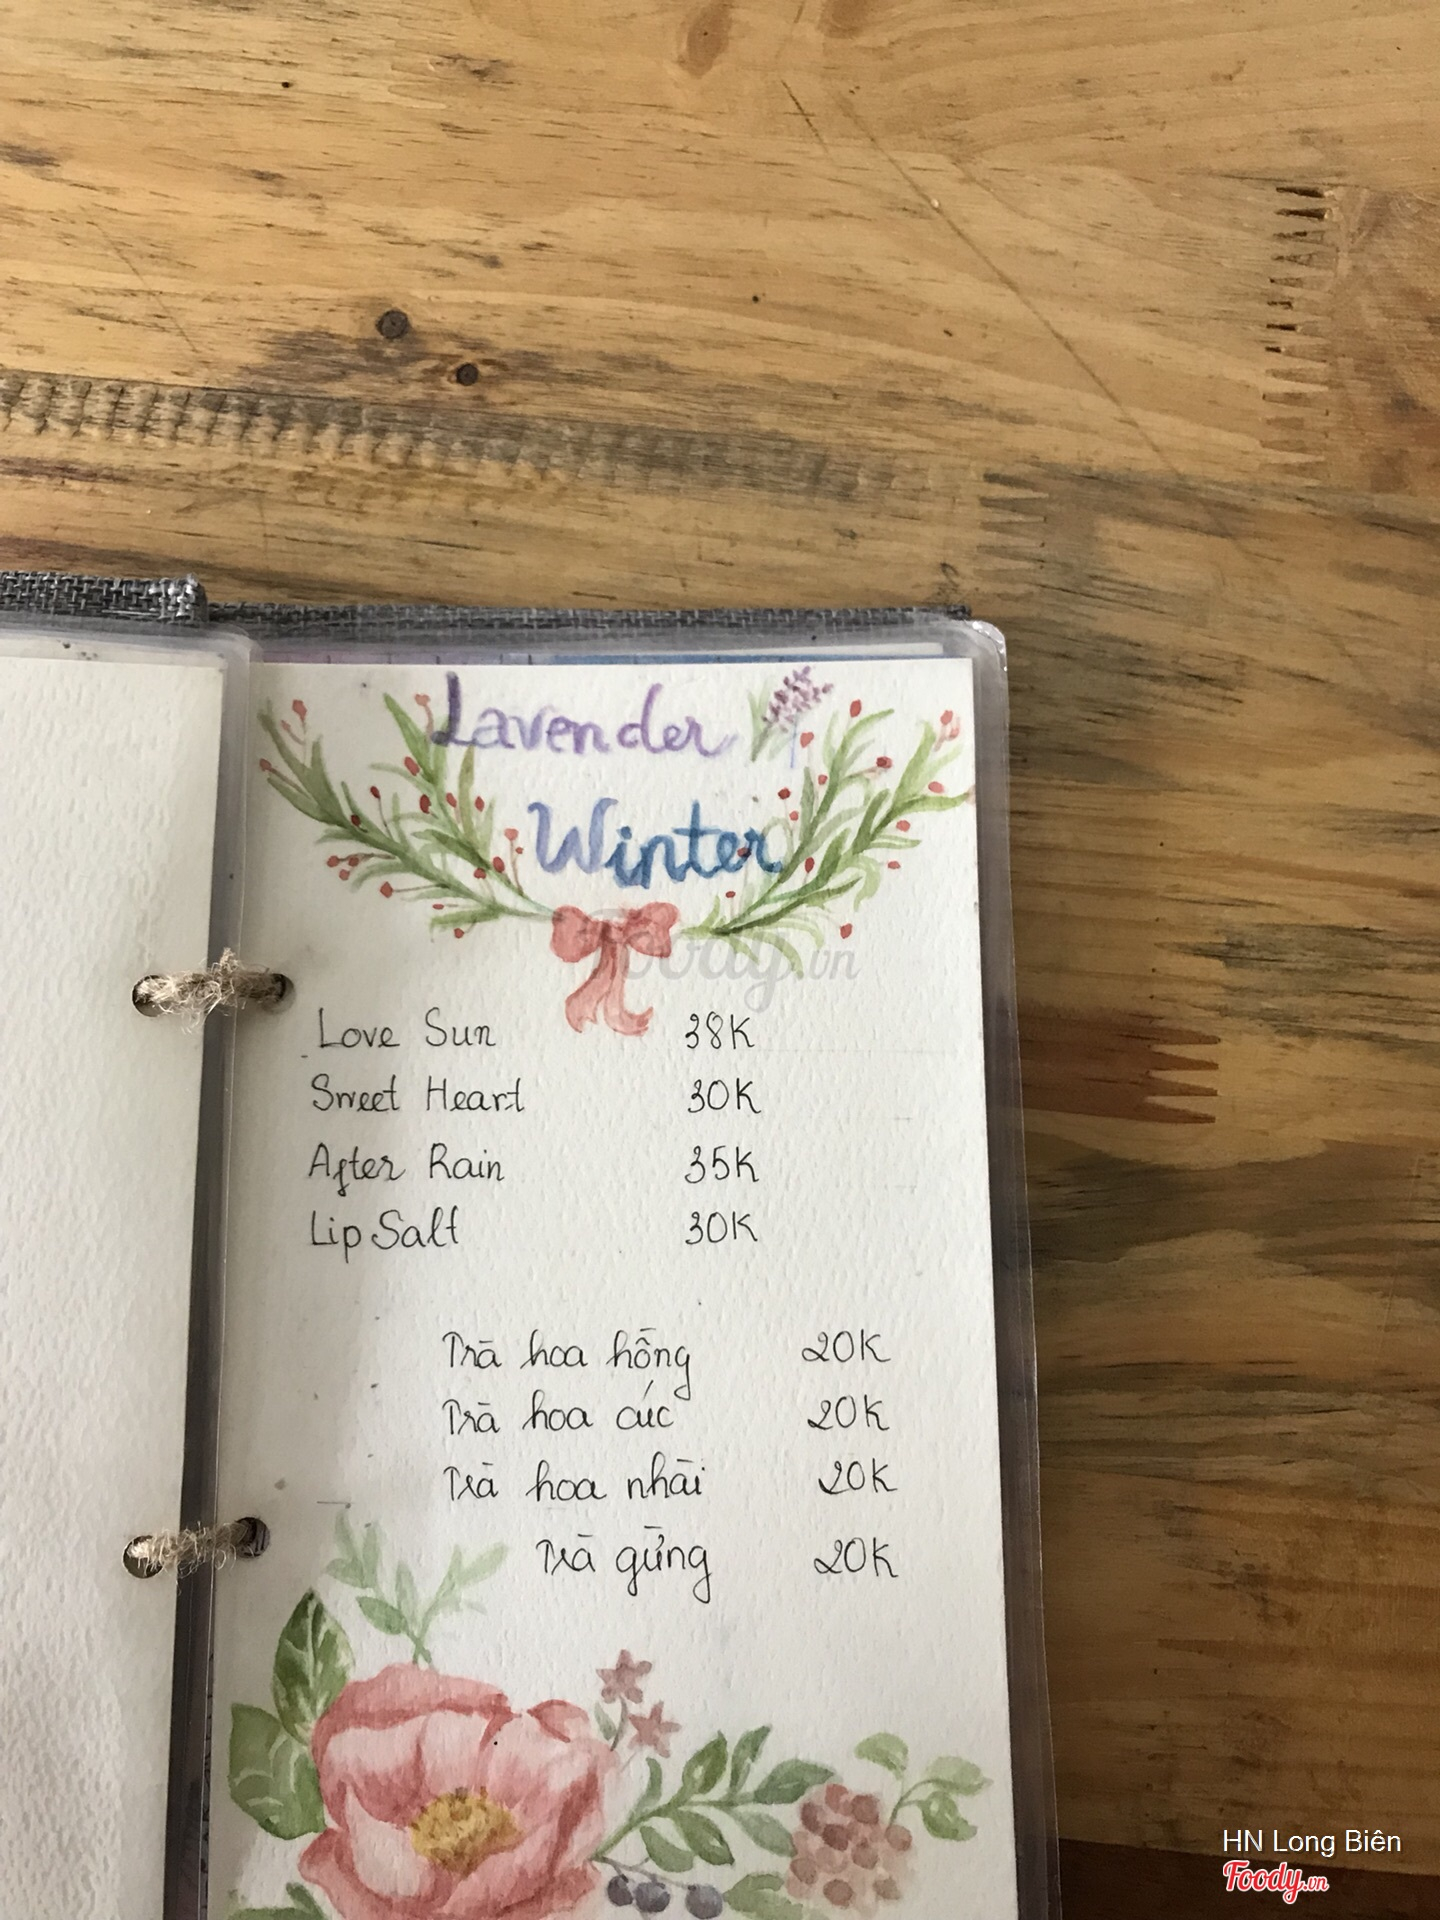 Lavender
Winter
Foody.vn
Love Sun 38K
Sweet Heart 30K
After Rain 35K
Lip Salt 30K
Trà hoa hồng 20K
Trà hoa cúc 20K
Trà hoa nhài 20K
Trà gừng 20K
HN Long Biên
Foody.vn